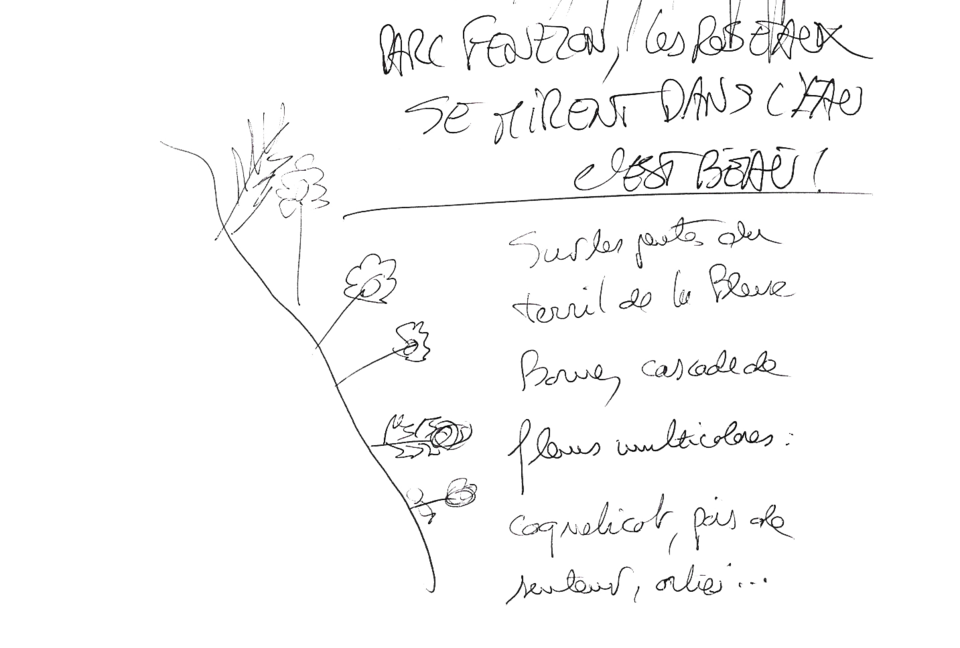 PARC FENEZON, les ROSEAUX
SE MIRENT DANS L'EAU
C'EST BEAU !
Sur les pentes du
terril de la Bleuse
Borne, cascade de
fleurs multicolores :
coquelicot, pois de
senteur, ortie...